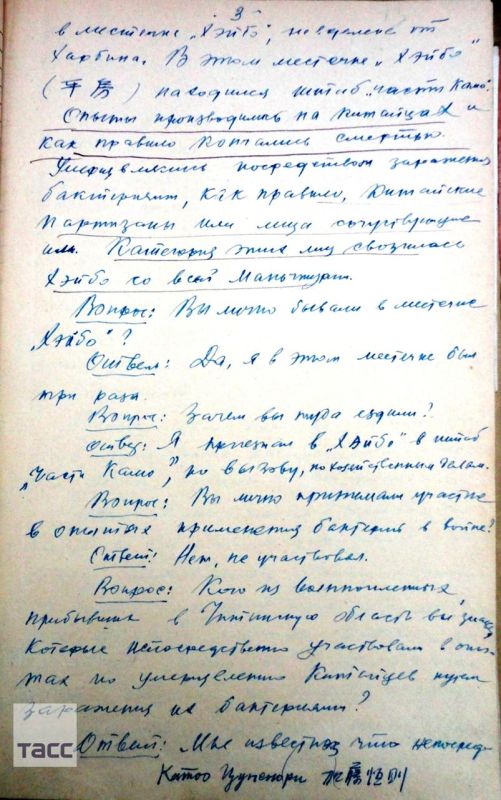 3
в местечке „Хэйбо", недалеко от
Харбина. В этом местечке „Хэйбо"
(平房) находился штаб „части Камо".
Опыты производились на китайцах и
как правило кончались смертью.
Умерщвлялись посредством заражения
бактериями, как правило, китайские
партизаны или лица сочувствующие
им. Категория этих лиц свозилась
Хэйбо со всей Маньчжурии.
Вопрос: Вы лично бывали в местечке
„Хэйбо"?
Ответ: Да, я в этом местечке был
три раза.
Вопрос: Зачем вы туда ездили?
Ответ: Я приезжал в „Хэйбо" в штаб
„Части Камо", по вызову, по хозяйственным делам.
Вопрос: Вы лично принимали участие
в опытах применения бактерий в войне?
Ответ: Нет, не участвовал.
Вопрос: Кого из военнопленных,
прибывших в Читинскую область вы знаете
которые непосредственно участвовали в опы-
тах по умерщвлению китайцев путем
заражения их бактериями?
Ответ: Мне известно, что непосред-
Катоо Цуненори 加藤恒則
ТАСС